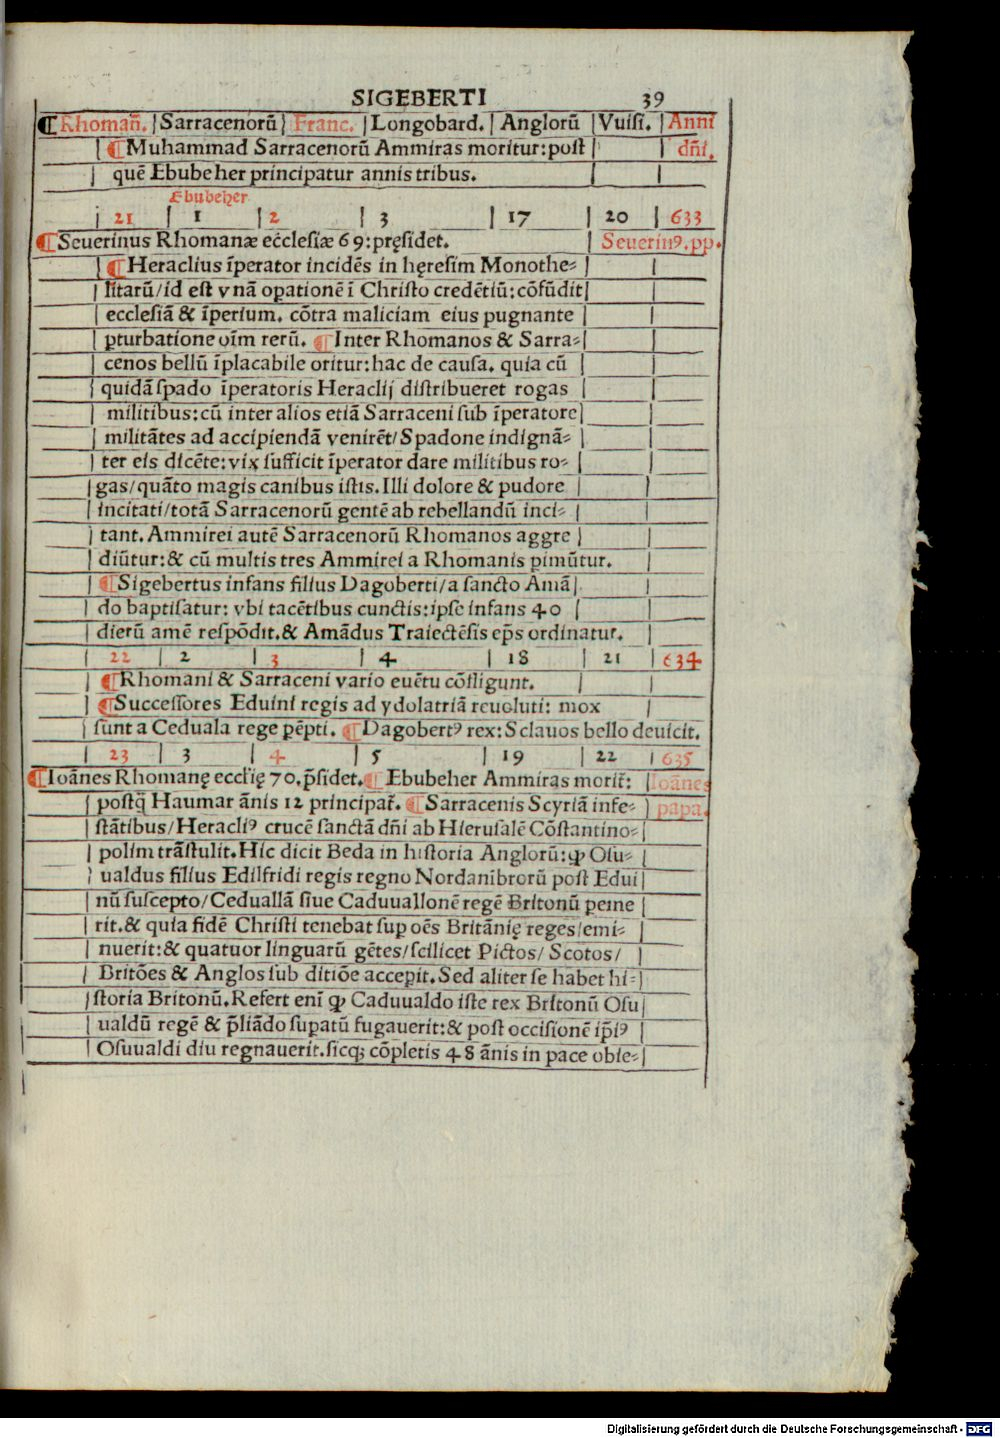 SIGEBERTI 39
¶Rhomañ. |Sarracenorũ| Franc. |Longobard.| Anglorũ |Vuisi. |Anni
¶Muhammad Sarracenorũ Ammiras moritur:post dñi.
quẽ Ebubeher principatur annis tribus.
Ebubeher
21 | 1 | 2 | 3 | 17 | 20 | 633
¶Seuerinus Rhomanæ ecclesiæ 69:pręsidet. Seuerinꝰ.pp.
¶Heraclius ĩperator incidẽs in hęresim Monothe⸗
litarũ/id est vnã oꝑationẽ ĩ Christo credẽtiũ:cõfũdit
ecclesiã & ĩperium. cõtra maliciam eius pugnante
ꝑturbatione oĩm rerũ. ¶Inter Rhomanos & Sarra⸗
cenos bellũ ĩplacabile oritur:hac de causa. quia cũ
quidã spado ĩperatoris Heraclij distribueret rogas
militibus:cũ inter alios etiã Sarraceni sub ĩperatore
militãtes ad accipiendã venirẽt/Spadone indignã⸗
ter eis dicẽte:vix sufficit ĩperator dare militibus ro⸗
gas/quãto magis canibus istis.Illi dolore & pudore
incitati/totã Sarracenorũ gentẽ ab rebellandũ inci⸗
tant. Ammirei autẽ Sarracenorũ Rhomanos aggre
diũtur:& cũ multis tres Ammirei a Rhomanis pimũtur.
¶Sigebertus infans filius Dagoberti/a sancto Amã
do baptisatur: vbi tacẽtibus cunctis:ipse infans 40
dierũ amẽ respõdit.& Amãdus Traiectẽsis ep̃s ordinatur.
22 | 2 | 3 | 4 | 18 | 21 | 634
¶Rhomani & Sarraceni vario euẽtu cõfligunt.
¶Successores Eduini regis ad ydolatriã reuoluti: mox
sunt a Ceduala rege pẽpti. ¶Dagobertꝰ rex:Sclauos bello deuicit.
23 | 3 | 4 | 5 | 19 | 22 | 635
¶Ioãnes Rhomanę eccl̃ię 70.p̃sidet.¶ Ebubeher Ammiras morit̃: Ioãnes
postq̃ Haumar ãnis 12 principat̃. ¶Sarracenis Scyriã infe⸗ papa.
stãtibus/Heracliꝰ crucẽ sanctã dñi ab Hierusalẽ Cõstantino⸗
polim trãstulit.Hic dicit Beda in historia Anglorũ:ꝙ Osu⸗
ualdus filius Edilfridi regis regno Nordanĩbrorũ post Edui
nũ suscepto/Ceduallã siue Caduuallonẽ regẽ Britonũ peme
rit.& quia fidẽ Christi tenebat suꝑ oẽs Britãnię reges/emi⸗
nuerit:& quatuor linguarũ gẽtes/scilicet Pictos/ Scotos/
Britões & Anglos sub ditiõe accepit.Sed aliter se habet hi⸗
storia Britonũ.Refert enĩ ꝙ Caduualdo iste rex Britonũ Osu
ualdũ regẽ & p̃liãdo suꝑatũ fugauerit:& post occisionẽ ip̃iꝰ
Osuualdi diu regnauerit.sicq; cõpletis 48 ãnis in pace obie⸗
Digitalisierung gefördert durch die Deutsche Forschungsgemeinschaft - DFG